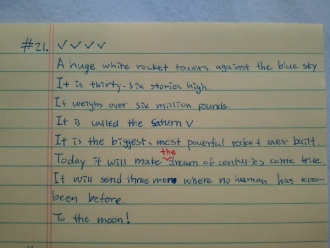 #21. ✓ ✓ ✓ ✓
A huge white rocket towers against the blue sky.
It is thirty-six stories high.
It weighs over six million pounds.
It is called the Saturn V
It is the biggest, most powerful rocket ever built.
the
Today it will make dream of centuries come true.
It will send three men where no human has ever
been before.
To the moon!